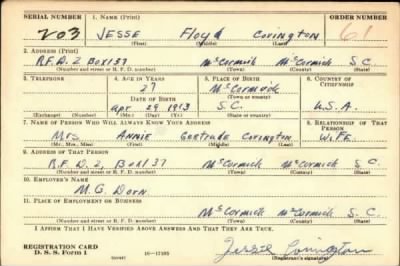 SERIAL NUMBER 1. NAME (Print) ORDER NUMBER
203 JESSE Floyd Covington 61
(First) (Middle) (Last)
2. ADDRESS (Print)
R.F.D. 2 Box 137 McCormick McCormick S.C.
(Number and street or R. F. D. number) (Town) (County) (State)
3. TELEPHONE 4. AGE IN YEARS 5. PLACE OF BIRTH 6. COUNTRY OF CITIZENSHIP
27 McCormick
(Town or county)
DATE OF BIRTH
Apr 29 1913 S.C. U.S.A.
(Exchange) (Number) (Mo.) (Day) (Yr.) (State or country)
7. NAME OF PERSON WHO WILL ALWAYS KNOW YOUR ADDRESS 8. RELATIONSHIP OF THAT PERSON
Mrs Annie Gertrude Covington Wife
(Mr., Mrs., Miss) (First) (Middle) (Last)
9. ADDRESS OF THAT PERSON
R.F.D. 2, Box 137 McCormick McCormick S.C.
(Number and street or R. F. D. number) (Town) (County) (State)
10. EMPLOYER'S NAME
M.G. Dorn
11. PLACE OF EMPLOYMENT OR BUSINESS
McCormick McCormick S.C.
(Number and street or R. F. D. number) (Town) (County) (State)
I AFFIRM THAT I HAVE VERIFIED ABOVE ANSWERS AND THAT THEY ARE TRUE.
REGISTRATION CARD
D. S. S. Form 1 (over) Jessie Covington
(Registrant's signature)